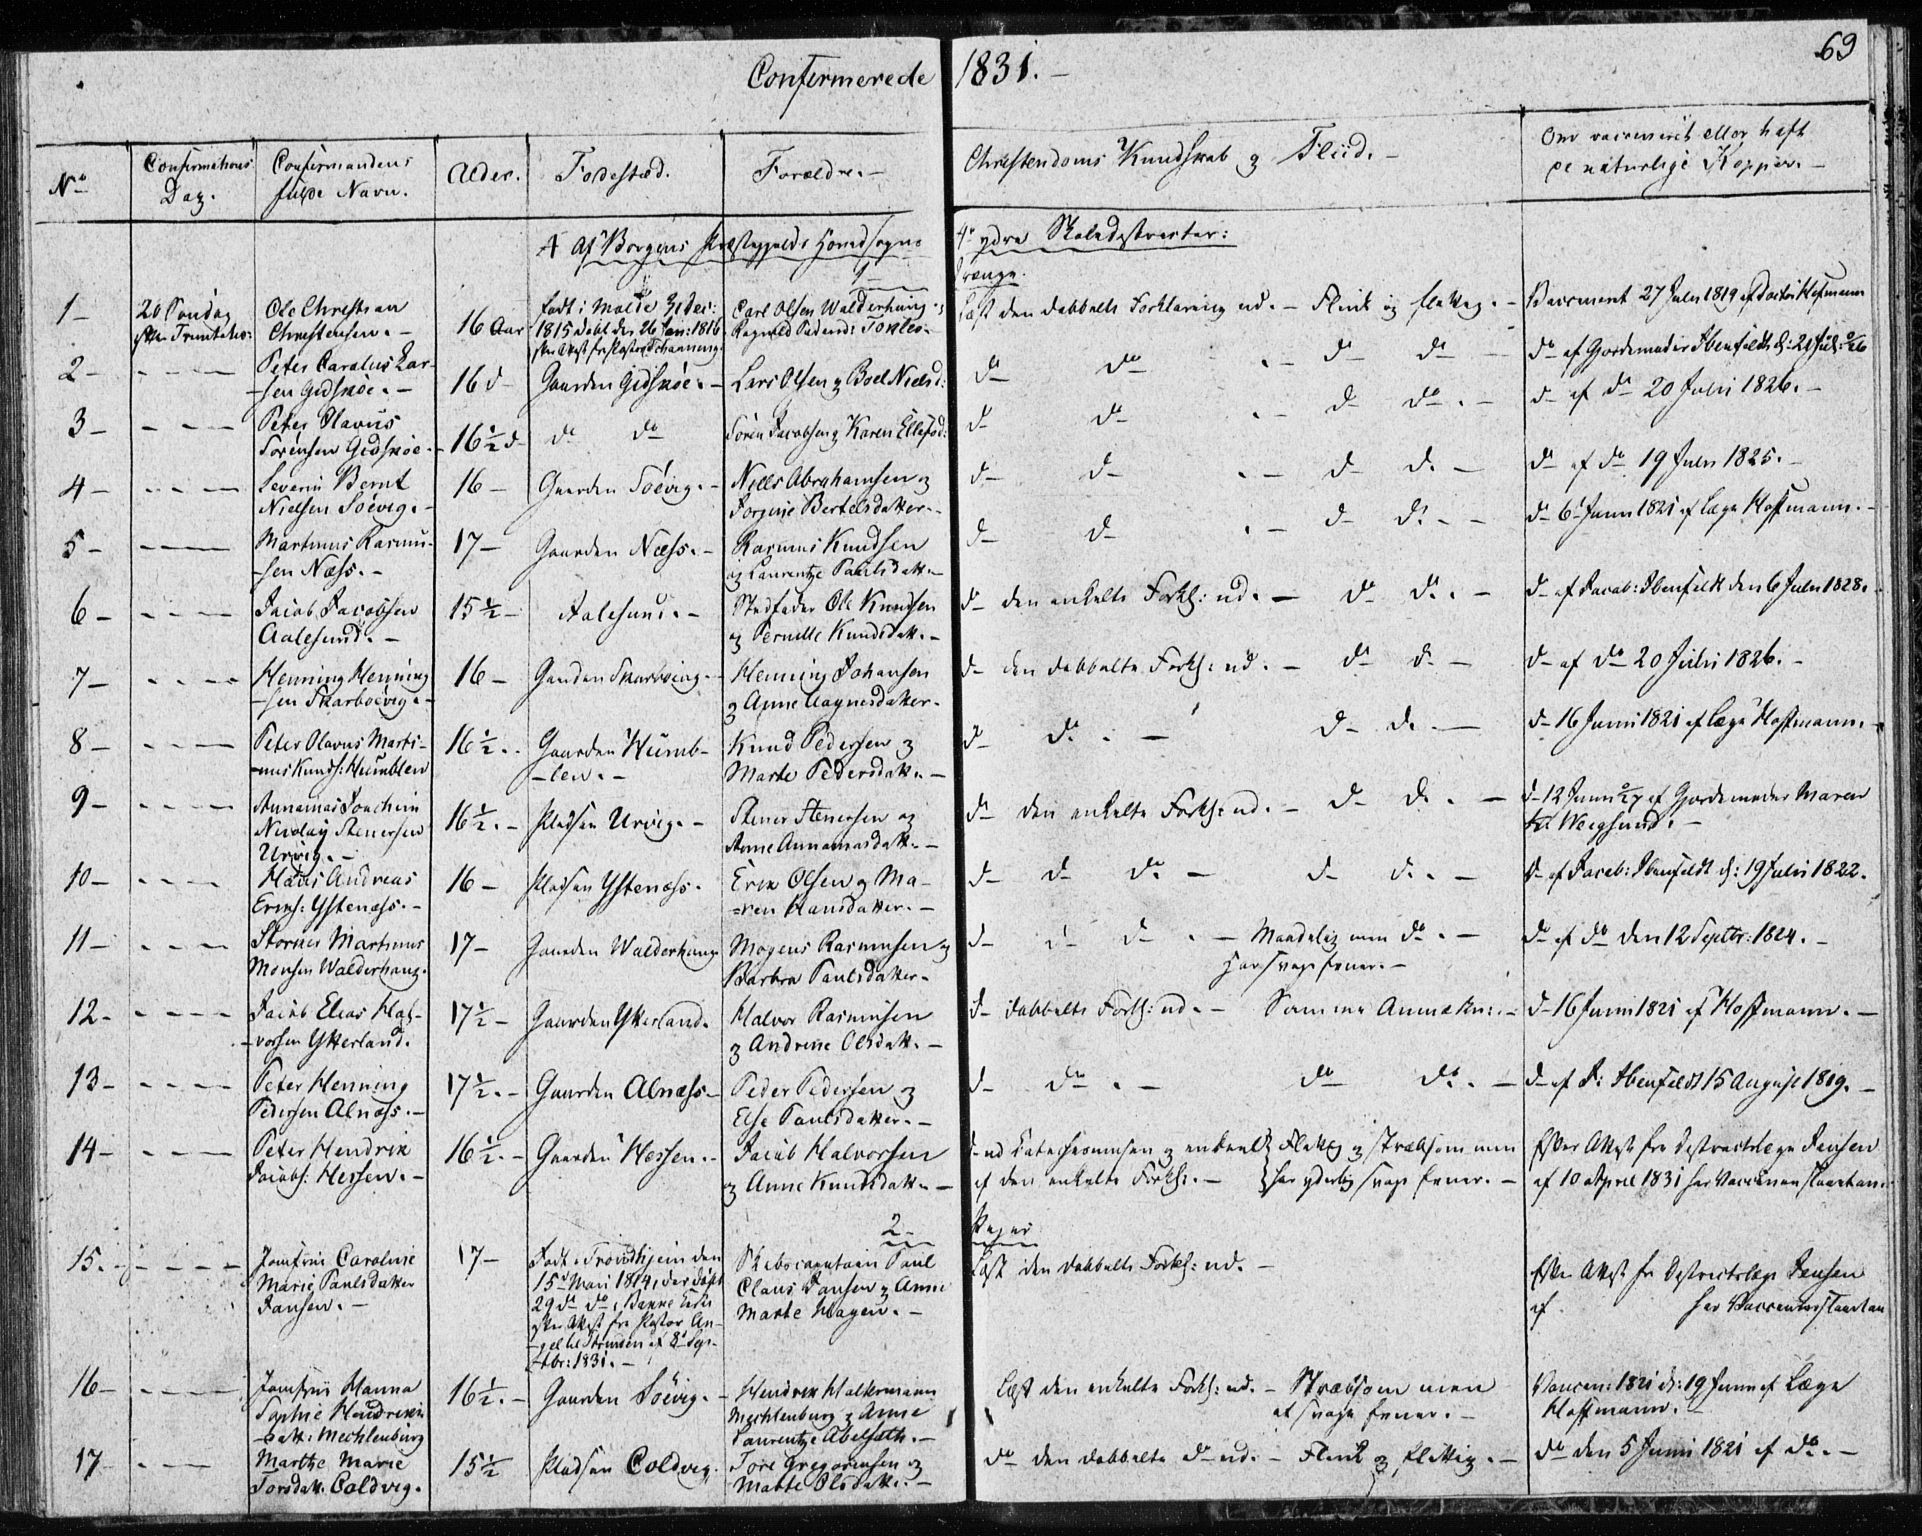 69
Confirmerede 1831. –
No
Confirmations Dag.
Confirmandens fulde Navn.
Alder.
Fødestæd.
Forældre. –
Christendoms Kundskab og Fliid. –
Om vaccineret eller haft de naturlige Kopper. –
A Af Borgens Præstegjelds Hovedsogns
4re ydre Skoledistricter:
1
Drenge.
1 –
20 Søndag efter Trinitatis:
Ole Christian
Christensen. –
16 Aar
født i Molde
1815 døbt den 26 Jan: 1816
efter Attest fra Pastor Schanning
Carl Olsen Walderhaug
Ragnild Pedersd: Tonles. –
Læst den dobbelte Forklaring ud. – Flink og flittig. –
Vaccineret 27 Julii 1819 af Doctor Hofmann
2 –
Peter Carolus Lar-
-sen Gidskøe. –
16 d
Gaarden Gidskøe. –
Lars Olsen og Boel Nielsd:
do do . – do do –
do af Gjordemoder Ibenfeldt d: 21 Juli
3 –
Peter Olavus
Sørensen Gidskøe. –
16 ½ d
do do
Søren Jacobsen og Karen Ellefsd:
do do . – do do . –
do af do 20 Julii 1826. –
4 –
Severin Bernt
Nielsen Søevig. –
16 –
Gaarden Søevig. –
Niels Abrahamsen og
Jorgine Bertelsdatter. –
do do . – do do –
do af do 19 Julii 1825. –
5 –
Martinus Rasmu-
-sen Næss. –
17 –
Gaarden Næss. –
Rasmus Knudsen
og Laurentze Paulsdatt. –
do do . – do do . –
do 6 Junii 1821 af Læge Hoffmann. –
6 –
Jacob Jacobsen
Aalesund. –
15 ½ –
Aalesund. –
Stedfader Ole Knudsen
og Pernille Knudsdatt. –
do den enkelte Forkl: ud. – do do . –
do af Jacob: Ibenfeldt den 6 Julii 1828.
7 –
Henning Henning
-sen Skarboevig. –
16 –
Gaarden Skarboevig. –
Henning Johansen
og Anne Aagnesdatter.
do den dobbelte Forkl: ud. – do do –
do af do 20 Julii 1826. –
8 –
Peter Olavus Marti-
-nus Knuds: Humblen
16 ½. –
Gaarden Humb-
-len. –
Knud Pedersen og
Marte Pedersdatt. –
do do . – do do –
do 16 Junii 1821 af Læge Hoffmann. –
9 –
Annanias Joachim
Nicolay Stenersen
Urvig. –
16 ½. –
Pladsen Urvig. –
Stener Stenersen og
Anne Annaniasdatt. –
do den enkelte Forkl: ud. – do do . –
do 12 Junii af Gjordemoder Maren
Weigsund. –
10 –
Hans Andreas
Eriks: Ystenæss. –
16 –
Pladsen Ystenæss.
Erik Olsen og Ma-
-ren Hansdatter. –
do do do . – do do . –
do af Jacob: Ibenfeldt d: 19 Julii 1822.
11 –
Martinus
Monsen Walderhaug.
17 –
Gaarden Walderhaug
Mogens Rasmusen og
Barbra Paulsdatter.
do do do . – Maadelig men do . –
har svage Evner. –
do af do den 12 Septbr: 1824. –
12 –
Jacob Elias Hal-
-vorsen Ytterland.
17 ½ –
Gaarden Ytterland.
Halvor Rasmusen
og Andrine Olsdatt. –
do dobbelte Forkl: ud. – Samme Anmærkn: . –
do 16 Junii 1821 af Hoffmann. –
13 –
Peter Henning
Pedersen Alnæss. –
17 ½. –
Gaarden Alnæss –
Peder Pedersen og
Else Paulsdatter. –
do do . – do do . –
do af J: Ibenfeldt 15 August 1819. –
14 –
Peter Hendrik
Jacobs: Hessen. –
16 ½. –
Gaarden Hessen. –
Jacob Halvorsen
og Anne Knudsdatt. –
do ud Catechismusen og enkelt
af den enkelte Forkl: . –
Flittig og stræbsom men
har yderlig svage Evner. –
Efter Attest fra Districtslæge Jensen
af 10 April 1831 har Vaccinen staaet an.
2 –
Piger
15. –
Jomfrue Caroline
Marie Paulsdatter
Jansen. –
17 –
Født i Trondhjem den
15de Marti 1814, der døbt
29de do i Bakke Kirke
efter Attest fra Pastor An-
-gell til Strinden af 8de Sep-
-tbr: 1831. –
Skibscapitain Paul
Claus Jansen og Anne
Marte Hagen. –
Læst den dobbelte Forkl: ud. –
Efter Attest fra Districtslæge Jensen
af har Vaccinen staaet an
16 –
Jomfrue Hanna
Sophie Hendriks
datt: Mechlenburg
16 ½. –
Gaarden Søevig. –
Hendrik Halkermann
Mechlenburg og Anne
Laurentze Abelseth. –
Læst den enkelte Forkl: ud. – Stræbsom men
af svage Evner. –
Vaccin: 1821 d: 19 Junii af Læge
Hoffmann. –
17 –
Marthe Marie
Toresdatt. Coldvig.
15 ½
Pladsen Coldvig.
Tore Gregoriusen og
Mathe Olsdatt. –
do den dobbelte do ud. – Flink og flittig. –
do den 5 Junii 1821 af do. –